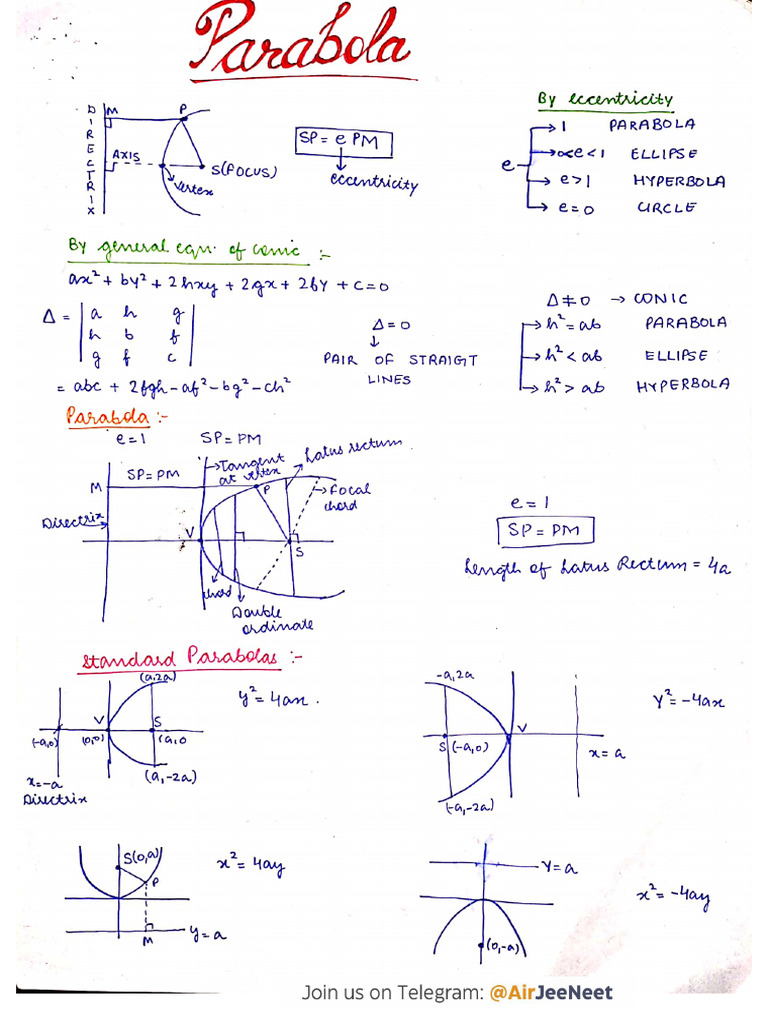 Parabola
DIRECTRIX
M P
AXIS
S(FOCUS)
Vertex
SP = e PM
eccentricity
By eccentricity
e
1 PARABOLA
0<e<1 ELLIPSE
e>1 HYPERBOLA
e=0 CIRCLE
By general eqn. of conic :-
ax² + by² + 2hxy + 2gx + 2fy + c=0
Δ = | a h g |
| h b f |
| g f c |
= abc + 2fgh - af² - bg² - ch²
Δ=0
↓
PAIR OF STRAIGT
LINES
Δ≠0 → CONIC
h²=ab PARABOLA
h²<ab ELLIPSE
h²>ab HYPERBOLA
Parabola :-
e=1 SP=PM
SP=PM
M
Directrix
Tangent
at vertex
Latus rectum
P
Focal
chord
V
S
chord
Double
ordinate
e=1
SP=PM
Length of Latus Rectum = 4a
Standard Parabolas :-
(a,2a)
y²=4ax.
V
S
(-a,0) (0,0) (a,0
x=-a
Directrix
(a,-2a)
-a,2a
y²=-4ax
V
S (-a,0)
x=a
(-a,-2a)
S(0,a)
x²=4ay
P
M
y=a
y=a
x²=-4ay
(0,-a)
Join us on Telegram: @AirJeeNeet